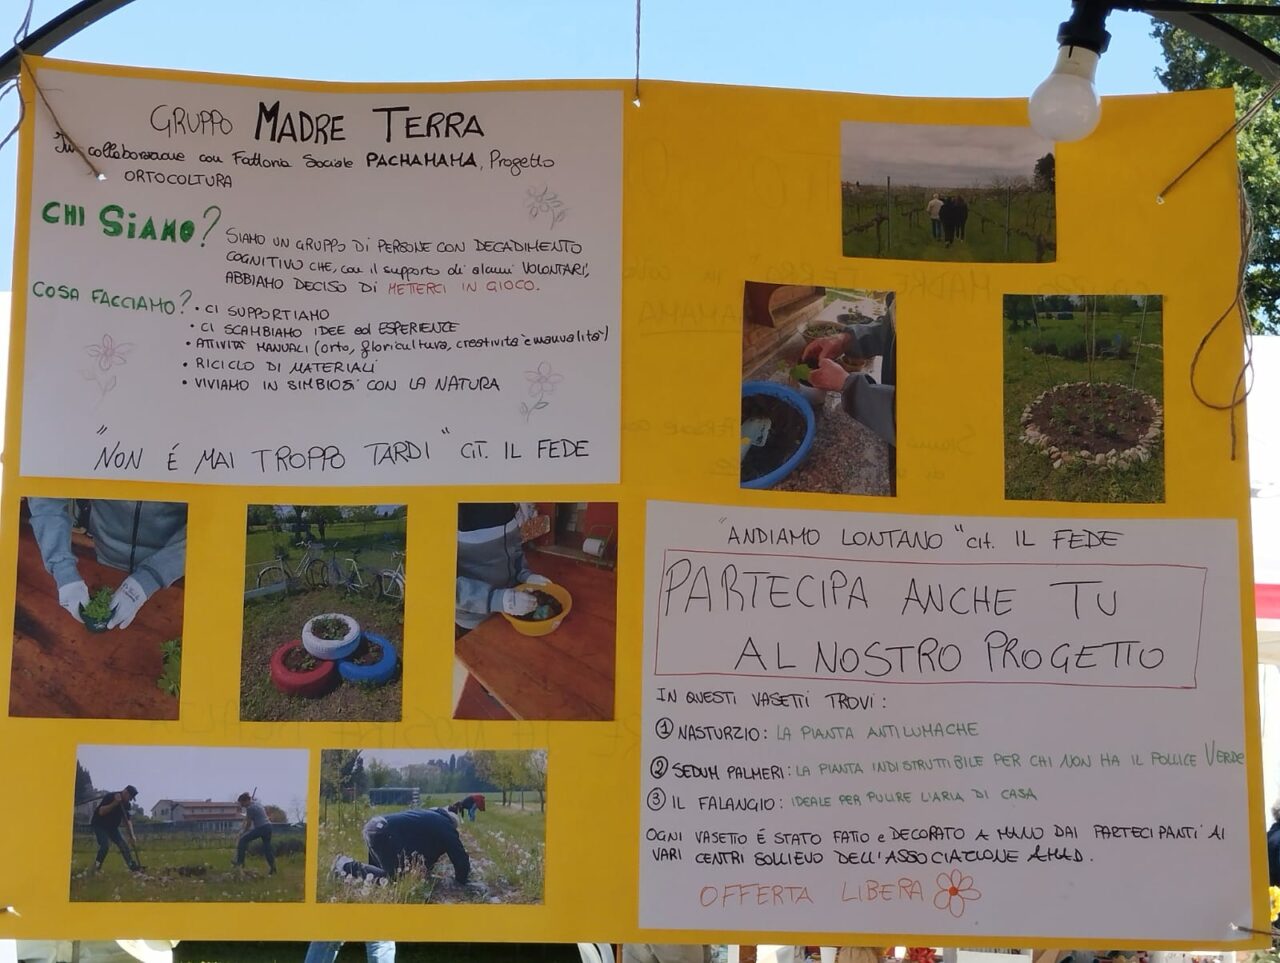 GRUPPO MADRE TERRA
In collaborazione con Fattoria Sociale PACHAMAMA, Progetto
ORTOCOLTURA
CHI SIAMO?
SIAMO UN GRUPPO DI PERSONE CON DECADIMENTO
COGNITIVO CHE, con il supporto di alcuni VOLONTARI,
ABBIAMO DECISO DI METTERCI IN GIOCO.
COSA FACCIAMO?
• CI SUPPORTIAMO
• CI SCAMBIAMO IDEE ed ESPERIENZE
• ATTIVITÀ MANUALI (orto, floricultura, creatività e manualità)
• RICICLO DI MATERIALI
• VIVIAMO IN SIMBIOSI CON LA NATURA
"NON É MAI TROPPO TARDI" CIT. IL FEDE
"ANDIAMO LONTANO" cit. IL FEDE
PARTECIPA ANCHE TU
AL NOSTRO PROGETTO
IN QUESTI VASETTI TROVI:
① NASTURZIO: LA PIANTA ANTILUMACHE
② SEDUM PALMERI: LA PIANTA INDISTRUTTIBILE PER CHI NON HA IL POLLICE VERDE
③ IL FALANGIO: IDEALE PER PULIRE L'ARIA DI CASA
OGNI VASETTO É STATO FATTO e DECORATO A MANO DAI PARTECIPANTI AI
VARI CENTRI SOLLIEVO DELL'ASSOCIAZIONE AMAD.
OFFERTA LIBERA